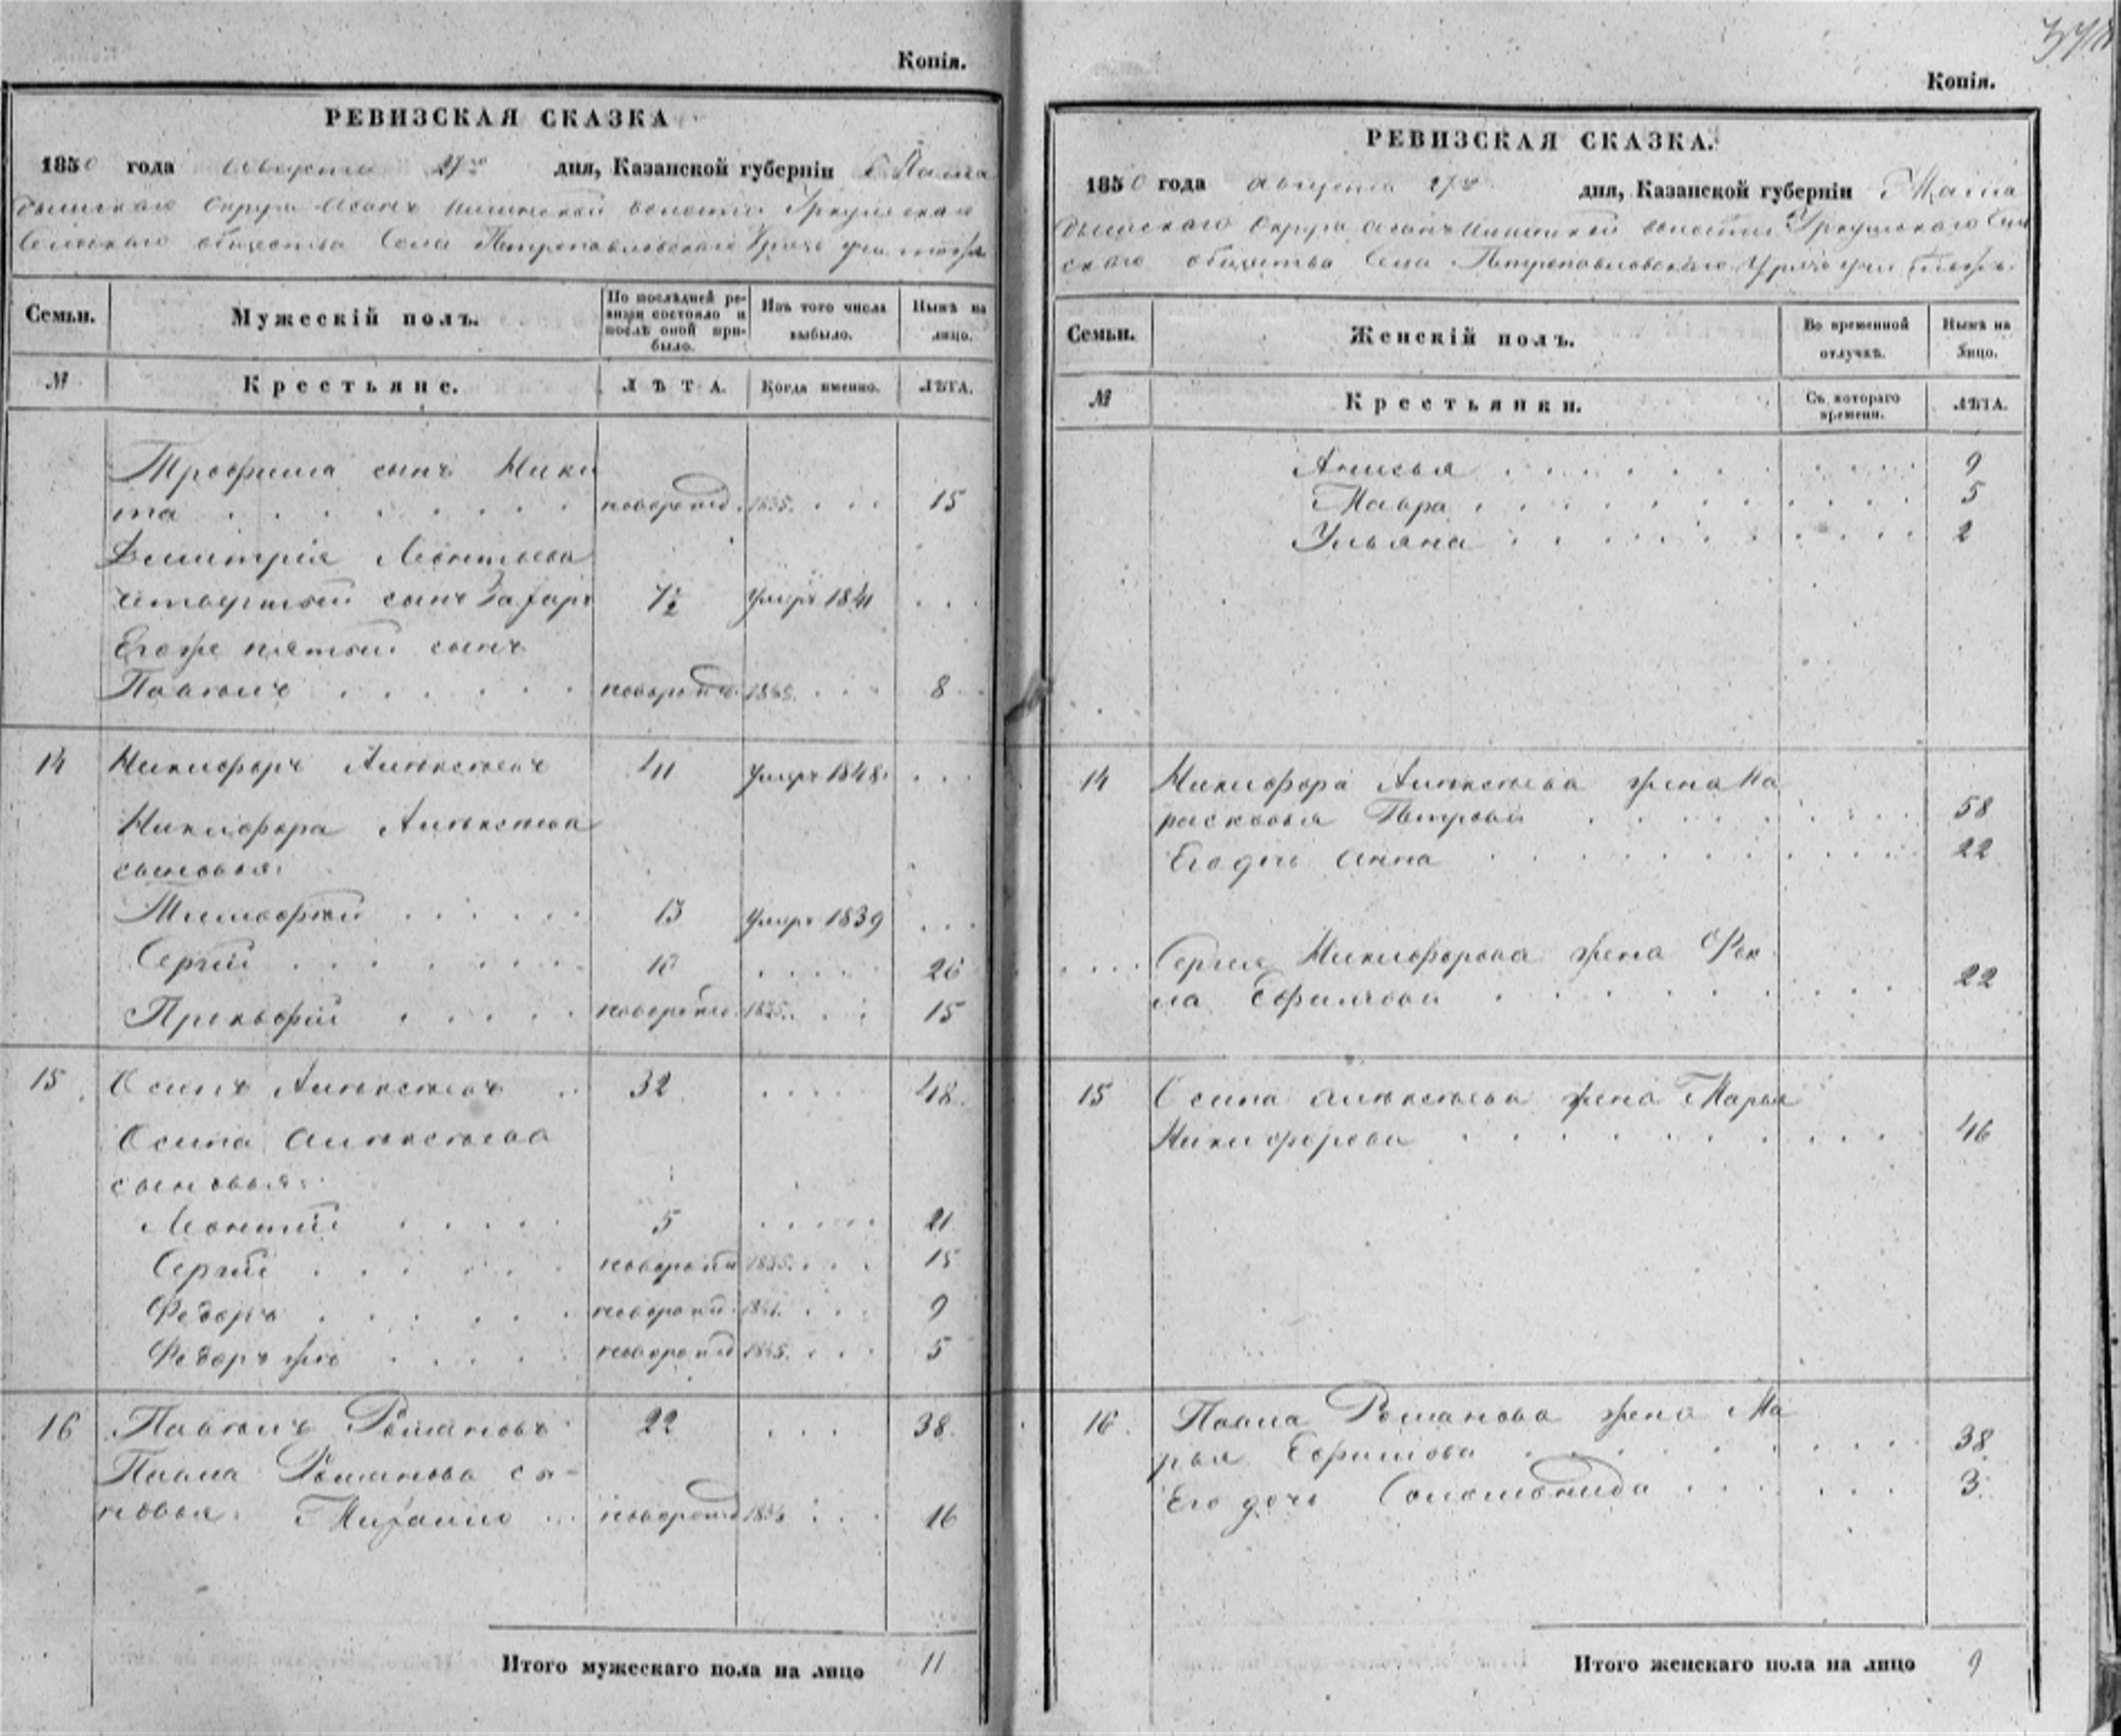 Копія.
РЕВИЗСКАЯ СКАЗКА
1850 года Августа 27го дня, Казанской губерніи
дышскаго Округа волости
Сельскаго общества Села Петропавловскаго
Семьи. Мужескій полъ. По послѣдней ревизіи состояло и послѣ оной прибыло. Изъ того числа выбыло. Нынѣ на лицо.
№ Крестьяне. ЛѢТА. Когда именно. ЛѢТА.
Трофима сынъ Ники
та новорожд. 1835. 15
Дмитрія Леонтьева
четвертый сынъ Захаръ ½ умеръ 1841
Егоже пятый сынъ
Павелъ новорожд. 8
14 Никифоръ Алексѣевъ 41 умеръ 1848.
Никифора Алексѣева
сыновья:
Тимофей 13 умеръ 1839
Сергѣй 10 26
Прокофій новорожд. 1835. 15
15 Осипъ Алексѣевъ 32 48.
Осипа Алексѣева
сыновья:
Леонтій 5 21
Сергѣй новорожд 1835. 15
Федоръ новорожд. 1841. 9
Федоръ же новорожд 1845. 5
16 Павелъ Романовъ 22 38.
Павла Романова сы-
новья: Михайло новорожд 1834 16
Итого мужескаго пола на лицо 11
Копія.
РЕВИЗСКАЯ СКАЗКА.
1850 года Августа 27го дня, Казанской губерніи Мама
дышскаго Округа волости Сель
скаго общества Села Петропавловскаго
Семьи. Женскій полъ. Во временной отлучкѣ. Нынѣ на лицо.
№ Крестьянки. Съ котораго времени. ЛѢТА.
Анисья 9
Мавра 5
Ульяна 2
14 Никифора Алексѣева жена Па
расковья Петрова 58
Его дочь Анна 22
Сергея Никифорова жена Фек
ла Ефимова 22
15 Осипа Алексѣева жена Марья
Никифорова 46
16. Павла Романова жена Ма
рья Ефимова 38.
Его дочь Соломонида 3.
Итого женскаго пола на лицо 9